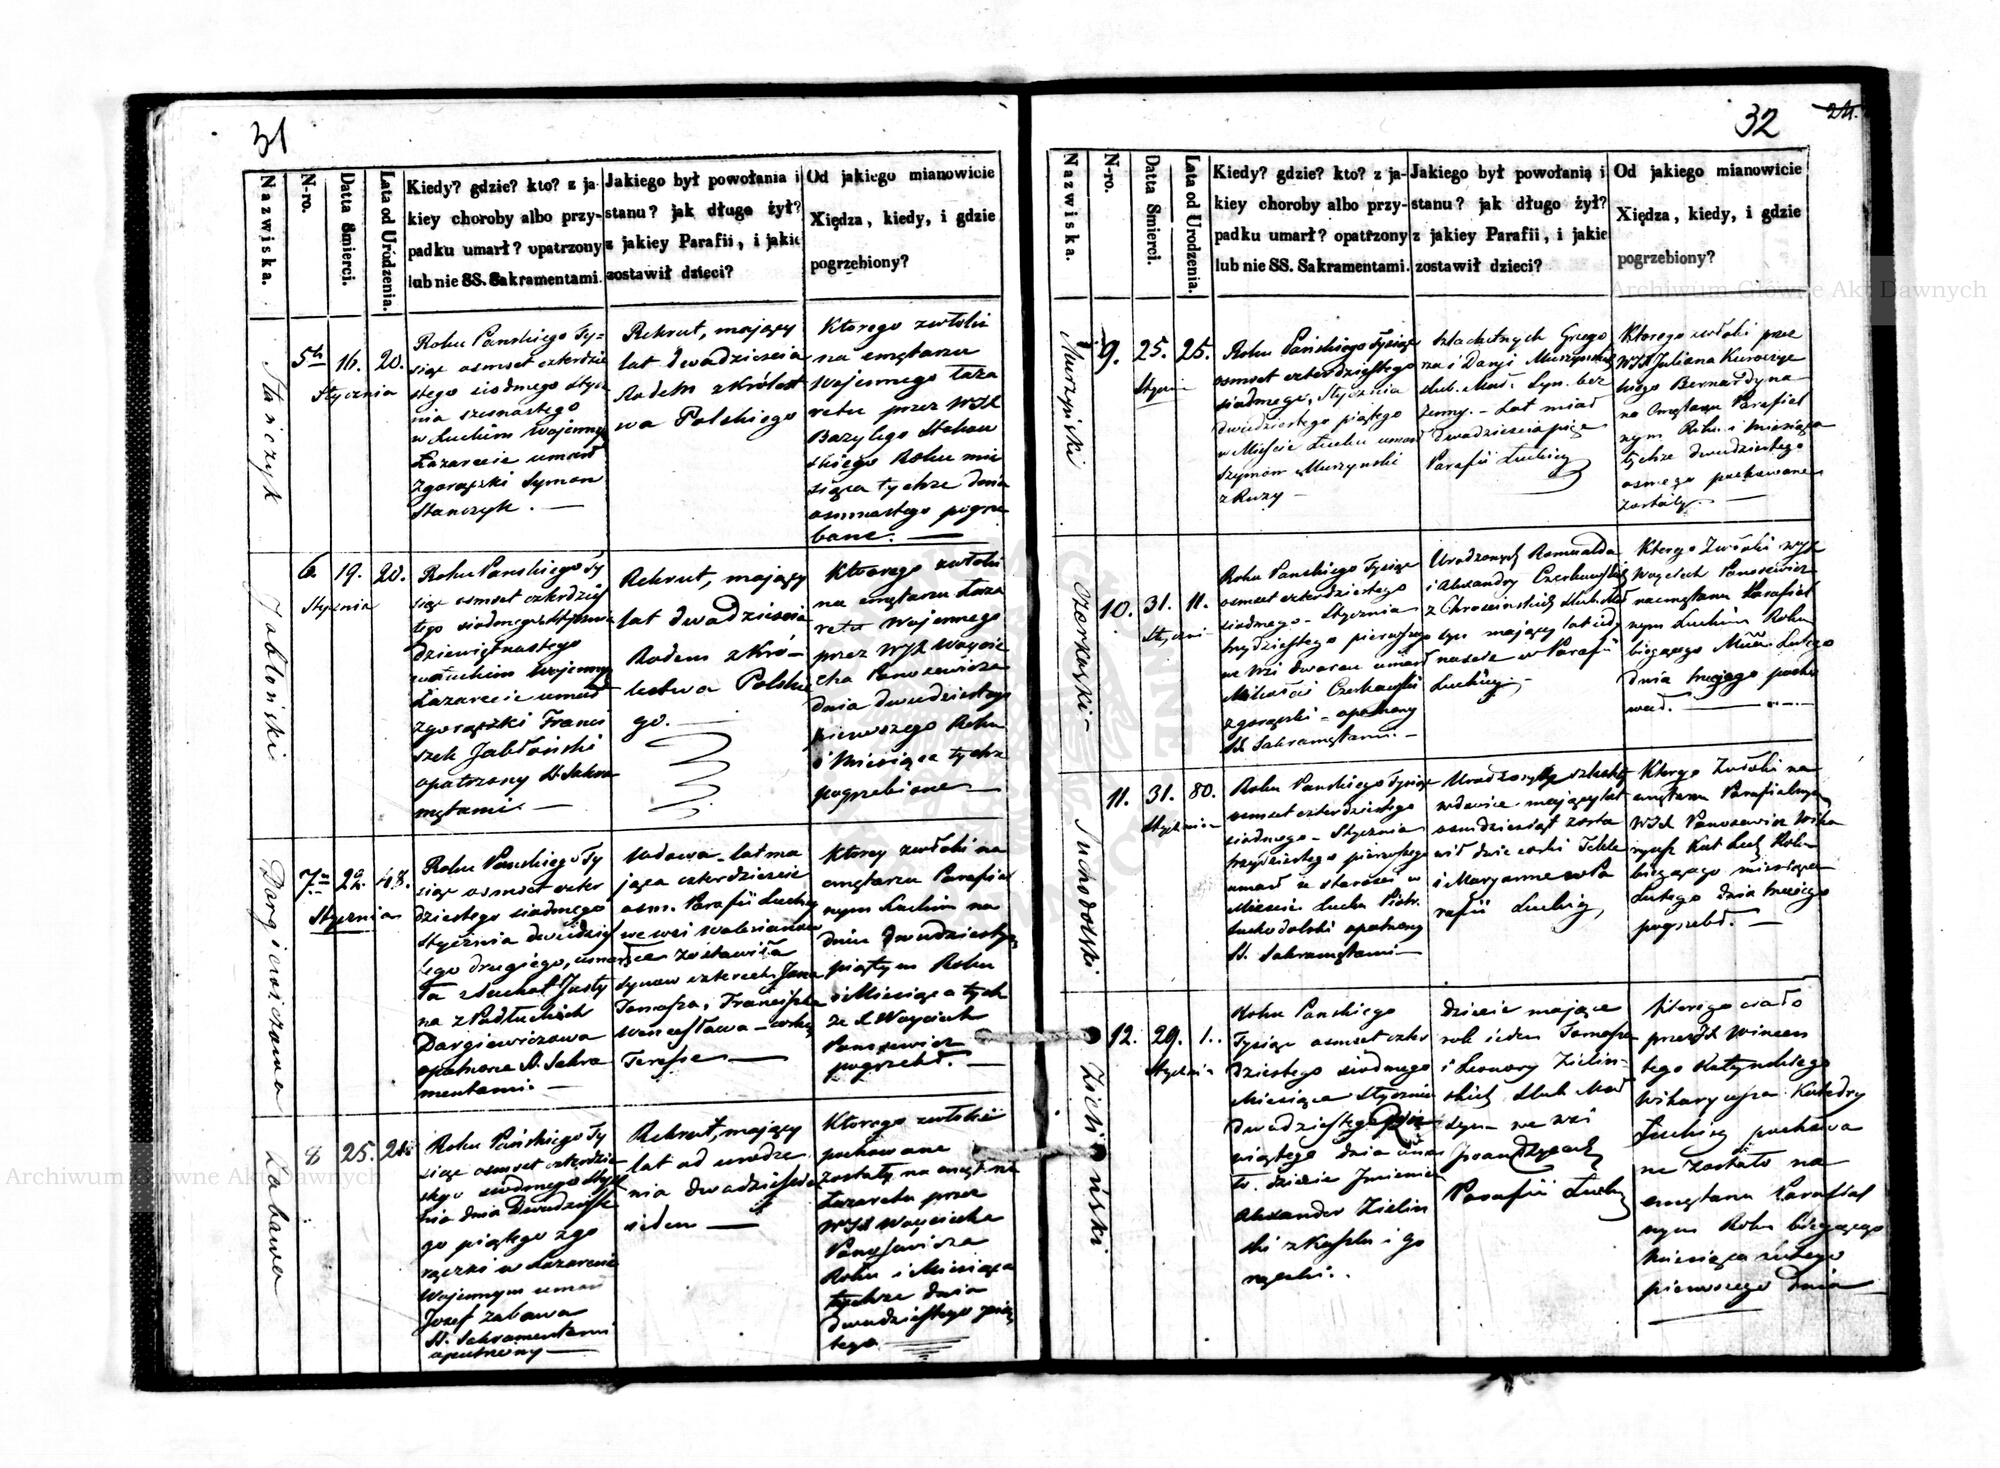 31
Nazwiska.
N-ro.
Datta Smierci.
Lata od Uródzenia.
Kiedy? gdzie? kto? z ja-
kiey choroby albo przy-
padku umarł? opatrzony
lub nie SS. Sakramentami.
Jakiego był powołania i
stanu? jak długo żył?
z jakiey Parafii, i jakie
zostawił dzieci?
Od jakiego mianowicie
Xiędza, kiedy, i gdzie
pogrzebiony?
Stańczyk
5
16.
Stycznia
20.
Roku Panskiego Ty=
siąc osmset czterdzie
stego siodmego stycz
nia szesnastego
w Łuckim Wojennym
Łazarecie umarł
zgorączki Symon
Stanczyk. —
Rekrut, mający
lat dwadziescia
Rodem z Królest
wa Polskiego
Ktorego zwłoki
na cmętarzu
Wojennego Łaza
retu przez
Bazylego
Roku mie
siąca tychże dnia
osmnastego pogrze
bane. —
Jabłoński
6.
19.
Stycznia
20.
Roku Panskiego Ty
siąc osmset czterdzies
tego siodmego Stycznia
dziewiętnastego
Łuckim Wojennym
Łazarecie umarł
zgorączki Franci
szek Jabłoński
opatrzony SS. Sakra
mętami. —
Rekrut, mający
lat dwadziescia
Rodem z Kró-
lestwa Polskie
go. —
Ktorego zwłoki
na cmętarzu Łaza
retu Wojennego
przez WJX Woycie
cha Panasewicza
dnia dwudziestego
pierwszego Roku
i Miesiąca tychże
pogrzebione —
Dargiewiczowa
7
22.
Stycznia
48.
Roku Panskiego Ty
siąc osmset czter
dziestego siodmego
Stycznia dwudzies
tego drugiego, umar
ła z Suchot Justy
na z Padłuckich
Dargiewiczowa
opatrzona S. Sakra
mentami. —
Wdowa. lat ma
jąca czterdziescie
osm. Parafii Łuckiey
we wsi
zostawiła
synow czterech Jana
Tomasza, Franciszka
Wacesława — corkę
Teresse —
Ktorey zwłoki na
cmętarzu Parafial
nym Łuckim na
dniu dwudziestym
piątym Roku
i Miesiąca tych
że X Woyciech
Panasewicz
pogrzebł. —
Zabawa
8
25.
Roku Pańskiego Ty
siąc osmset czterdzie
stego siodmego Stycz
nia dnia Dwudzieste
go piątego z go
rączki w Łazarecie
Wojennym umarł
Jozef Zabawa
SS. Sakramentami
opatrzony —
Rekrut, mający
lat od urodze
nia dwadziescia
siedem —
Ktorego zwłoki
pochowane
zostały na cmęt. na
Łazaretu przez
WJX Woyciecha
Panasewicza
Roku i Miesiąca
tychże dnia
dwudziestego pią
tego
32
24.
Nazwiska.
N-ro.
Datta Smierci.
Lata od Urodzenia.
Kiedy? gdzie? kto? z ja-
kiey choroby albo przy-
padku umarł? opatrzony
lub nie SS. Sakramentami.
Jakiego był powołania i
stanu? jak długo żył?
z jakiey Parafii, i jakie
zostawił dzieci?
Od jakiego mianowicie
Xiędza, kiedy, i gdzie
pogrzebiony?
Murzyński
9.
25.
25.
Roku Pańskiego Tysiąc
osmset czterdziestego
siodmego, Stycznia
dwudziestego piątego
w Mieście Łucku umarł
Szymon Murzynski
z Ruzy —
Szlachetnych Grzego
rza i Daryi Murzynskich
slub. Mał. Syn. bez
żenny. — Lat miał
dwadziescia pięć
Parafii Łuckiey
Ktorego zwłoki przez
WJX Juliana
Bernardyna
na Cmętarzu Parafial
nym Roku i miesiąca
tychże dwudziestego
osmego pochowane
zostały. —
Czerkawski —
10.
31.
11.
Roku Panskiego Tysiąc
osmset czterdziestego
siodmego. Stycznia
trzydziestego pierwszego
we Wsi Dworcu umarł
Mikołaj Czerkawski
zgorączki — opatrzony
SS. Sakramętami. —
Urodzonych Romualda
i Alexandry Czerkawskich
z Chrościnskich slub. Mał
syn mający lat
w Parafii
Łuckiey. —
Ktorego Zwłoki WJX
Woyciech Panasewicz
na cmętarzu Parafial
nym Łuckim Roku
bieżącego Mca Lutego
dnia trzeciego pocho
wał. —
Suchodolski
11.
31.
Stycznia
80.
Roku Panskiego Tysiąc
osmset czterdziestego
siodmego — Stycznia
trzydziestego pierwszego
umarł ze starości w
Miescie Łucku Piotr
Suchodolski opatrzony
SS. Sakramętami —
wdowiec. mający lat
osmdziesiąt zosta
wił dwie corki Teklę
i Maryannę w Pa
rafii Łuckiey
Ktorego Zwłoki na
cmętarzu Parafialnym
WJX Panasewicz Wika
ryusz Kat Łuck Roku
bieżącego miesiąca
Lutego dnia trzeciego
pogrzebł. —
Zieliński
12.
29.
Stycznia
1.
Roku Panskiego
Tysiąc osmset czter
dziestego siodmego
Miesiąca Stycznia
Dwudziestego
wiątego dnia umar
ło. dziecie Jmieniem
Alexander Zielin
ski z Kaszlu i go
rączki..
dziecie mające
rok ieden Tomasza
i Leonory Zielin-
skich slub Mał
syn — we wsi
Parafii Łuckiey
Ktorego ciało
przez JX Wincen
tego
Wikaryusza Katedry
Łuckiey pochowa
ne zostało na
cmętarzu Parafial
nym Roku bieżącego
miesiąca Lutego
pierwszego dnia
Archiwum Główne Akt Dawnych
Archiwum Główne Akt Dawnych